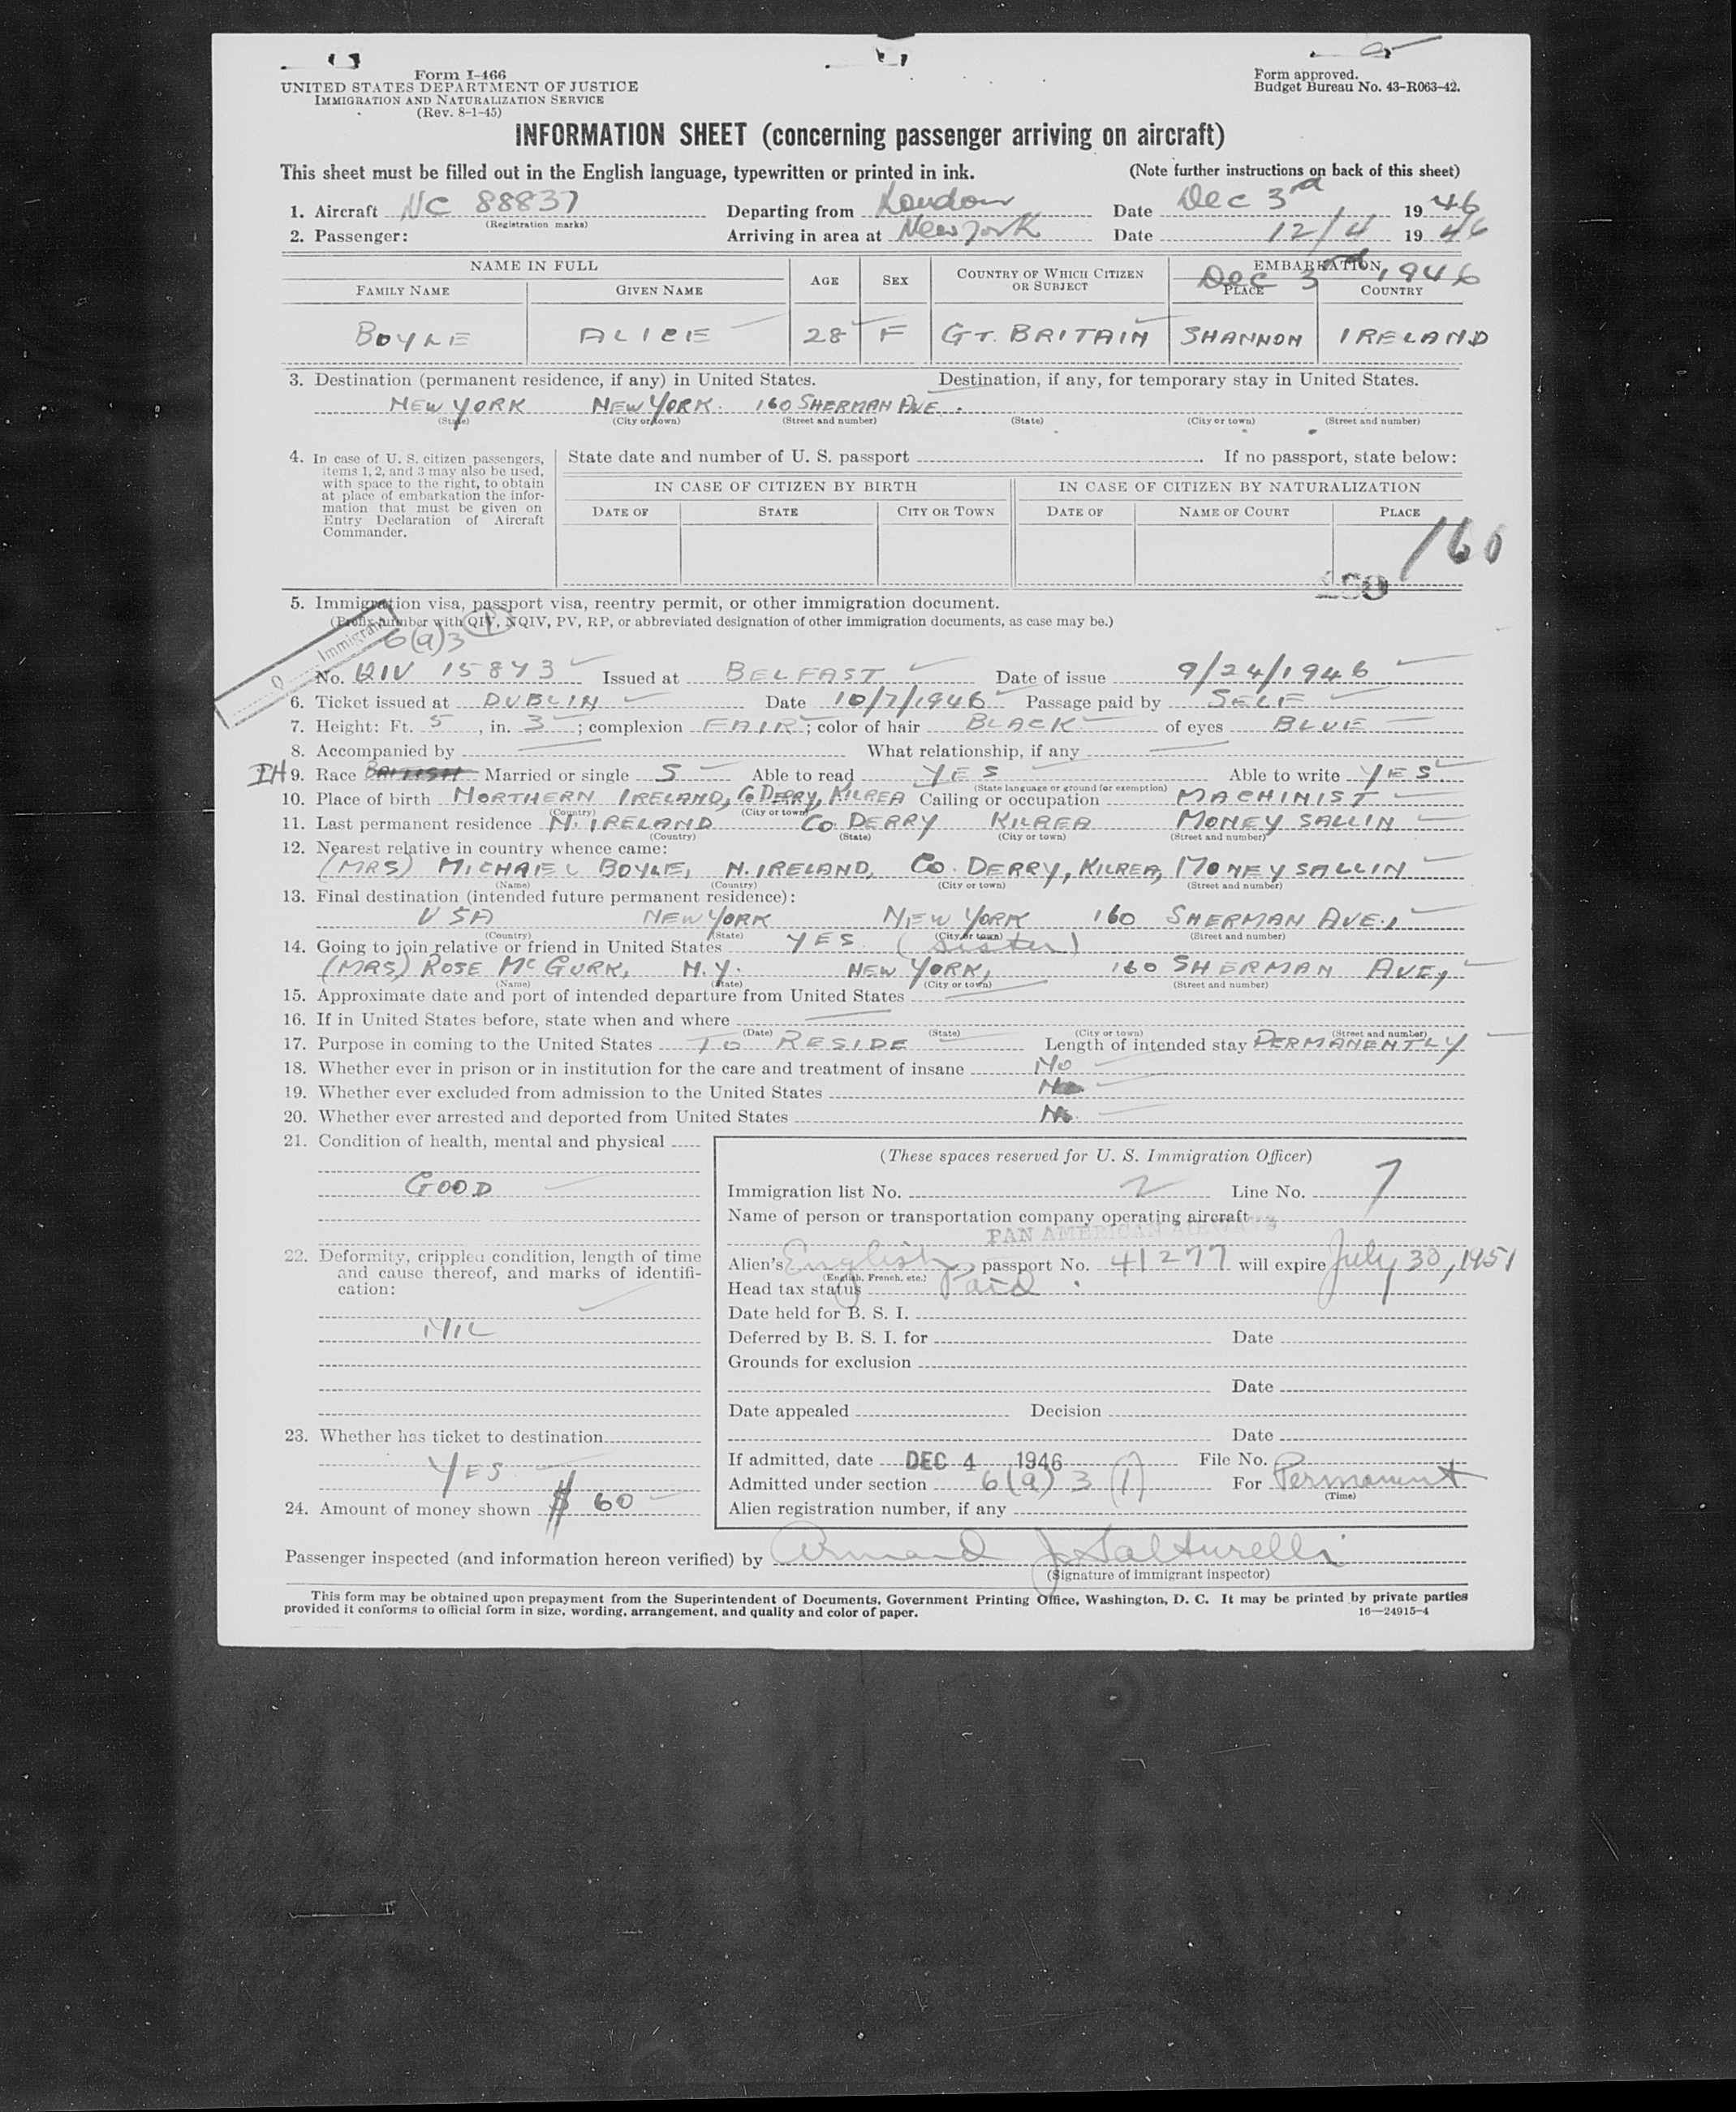 Form I-466
UNITED STATES DEPARTMENT OF JUSTICE
IMMIGRATION AND NATURALIZATION SERVICE
(Rev. 8-1-45)
Form approved.
Budget Bureau No. 43-R063-42.
INFORMATION SHEET (concerning passenger arriving on aircraft)
This sheet must be filled out in the English language, typewritten or printed in ink. (Note further instructions on back of this sheet)
1. Aircraft NC 88837 Departing from London Date Dec 3rd 1946
(Registration marks)
2. Passenger: Arriving in area at New York Date 12/4 1946
NAME IN FULL AGE SEX COUNTRY OF WHICH CITIZEN OR SUBJECT EMBARKATION
Dec 3rd, 1946
FAMILY NAME GIVEN NAME PLACE COUNTRY
BOYLE ALICE 28 F GT. BRITAIN SHANNON IRELAND
3. Destination (permanent residence, if any) in United States. Destination, if any, for temporary stay in United States.
NEW YORK NEW YORK. 160 SHERMAN AVE.
(State) (City or town) (Street and number) (State) (City or town) (Street and number)
4. In case of U. S. citizen passengers, items 1, 2, and 3 may also be used, with space to the right, to obtain at place of embarkation the information that must be given on Entry Declaration of Aircraft Commander.
State date and number of U. S. passport If no passport, state below:
IN CASE OF CITIZEN BY BIRTH IN CASE OF CITIZEN BY NATURALIZATION
DATE OF STATE CITY OR TOWN DATE OF NAME OF COURT PLACE
160
5. Immigration visa, passport visa, reentry permit, or other immigration document.
(Prefix number with QIV, NQIV, PV, RP, or abbreviated designation of other immigration documents, as case may be.)
Immigrant
6(a)3 (1)
No. QIV 15873 Issued at BELFAST Date of issue 9/24/1946
6. Ticket issued at DUBLIN Date 10/7/1946 Passage paid by SELF
7. Height: Ft. 5, in. 3; complexion FAIR; color of hair BLACK of eyes BLUE
8. Accompanied by What relationship, if any
IH 9. Race BRITISH Married or single S Able to read YES Able to write YES
(State language or ground for exemption)
10. Place of birth NORTHERN IRELAND, Co DERRY, KILREA Calling or occupation MACHINIST
(Country) (City or town)
11. Last permanent residence N. IRELAND Co DERRY KILREA MONEYSALLIN
(Country) (State) (City or town) (Street and number)
12. Nearest relative in country whence came:
(MRS) MICHAEL BOYLE, N. IRELAND, Co. DERRY, KILREA, MONEYSALLIN
(Name) (Country) (City or town) (Street and number)
13. Final destination (intended future permanent residence):
USA NEW YORK NEW YORK 160 SHERMAN AVE.,
(Country) (State) (City or town) (Street and number)
14. Going to join relative or friend in United States YES (Sister)
(MRS) ROSE McGURK, N.Y. NEW YORK, 160 SHERMAN AVE,
(Name) (State) (City or town) (Street and number)
15. Approximate date and port of intended departure from United States
16. If in United States before, state when and where
(Date) (State) (City or town) (Street and number)
17. Purpose in coming to the United States TO RESIDE Length of intended stay PERMANENTLY
18. Whether ever in prison or in institution for the care and treatment of insane No
19. Whether ever excluded from admission to the United States No
20. Whether ever arrested and deported from United States No
21. Condition of health, mental and physical
GOOD
22. Deformity, crippled condition, length of time and cause thereof, and marks of identification:
NIL
23. Whether has ticket to destination
YES
24. Amount of money shown $ 60
(These spaces reserved for U. S. Immigration Officer)
Immigration list No. 2 Line No. 7
Name of person or transportation company operating aircraft
PAN AMERICAN AIRWAYS
Alien's English passport No. 41277 will expire July 30, 1951
(English, French, etc.)
Head tax status Paid
Date held for B. S. I.
Deferred by B. S. I. for Date
Grounds for exclusion
Date
Date appealed Decision
Date
If admitted, date DEC 4 1946 File No.
Admitted under section 6(a) 3 (1) For Permanent
(Time)
Alien registration number, if any
Passenger inspected (and information hereon verified) by Armand J. Salturelli
(Signature of immigrant inspector)
This form may be obtained upon prepayment from the Superintendent of Documents, Government Printing Office, Washington, D. C. It may be printed by private parties
provided it conforms to official form in size, wording, arrangement, and quality and color of paper. 16—24915-4